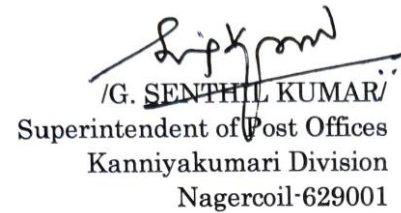 /G. SENTHIL KUMAR/
Superintendent of Post Offices
Kanniyakumari Division
Nagercoil-629001